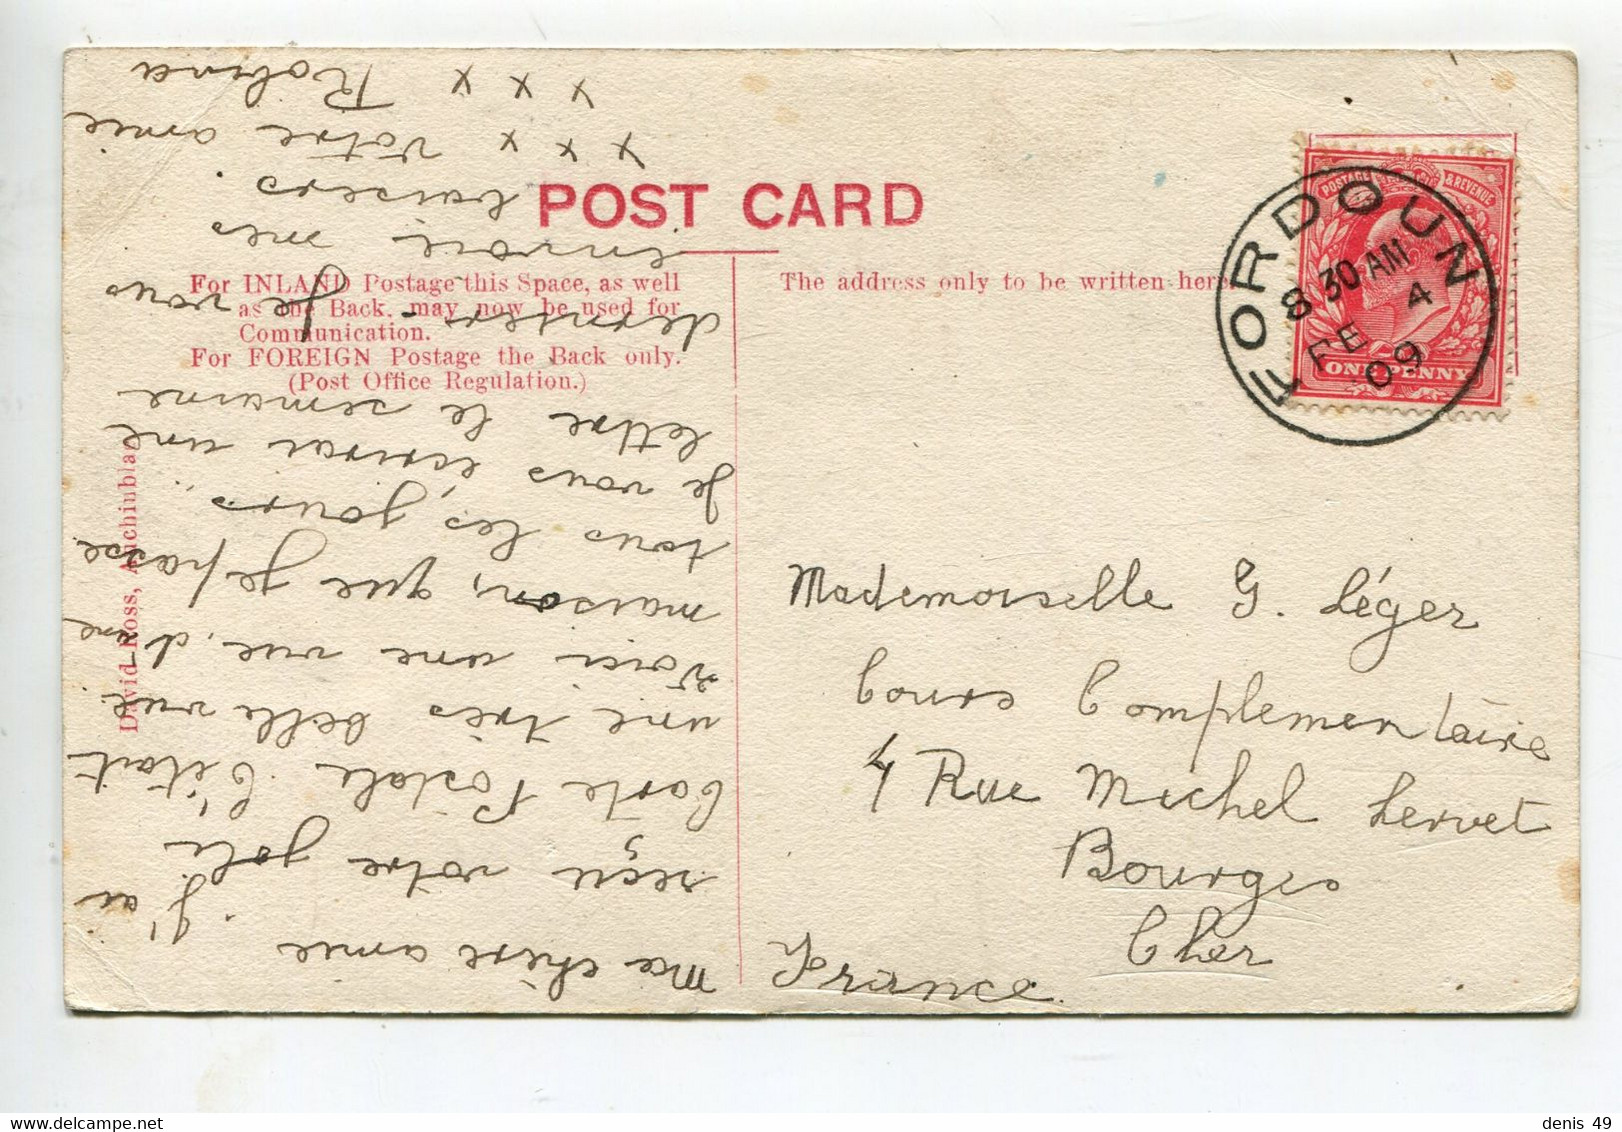 POST CARD
For INLAND Postage this Space, as well
as the Back, may now be used for
Communication.
For FOREIGN Postage the Back only.
(Post Office Regulation.)
The address only to be written here.
David Ross, Auchinblae
POSTAGE & REVENUE
ONE PENNY
FORDOUN
8 30 AM
FE 4
09
Mademoiselle G. Léger
Cours Complementaire
4 Rue Michel Servet
Bourges
Cher
France
Ma chère amie
J'ai
reçu votre jolie
Carte Postale C'était
une très belle vue.
Voici une vue, d'une
maison, que je passe
tous les jours.
Je vous écrirai une
lettre le semaine
dernier. Je vous
envoie mes
baisers.
x x x votre amie
x x x Robina
denis 49